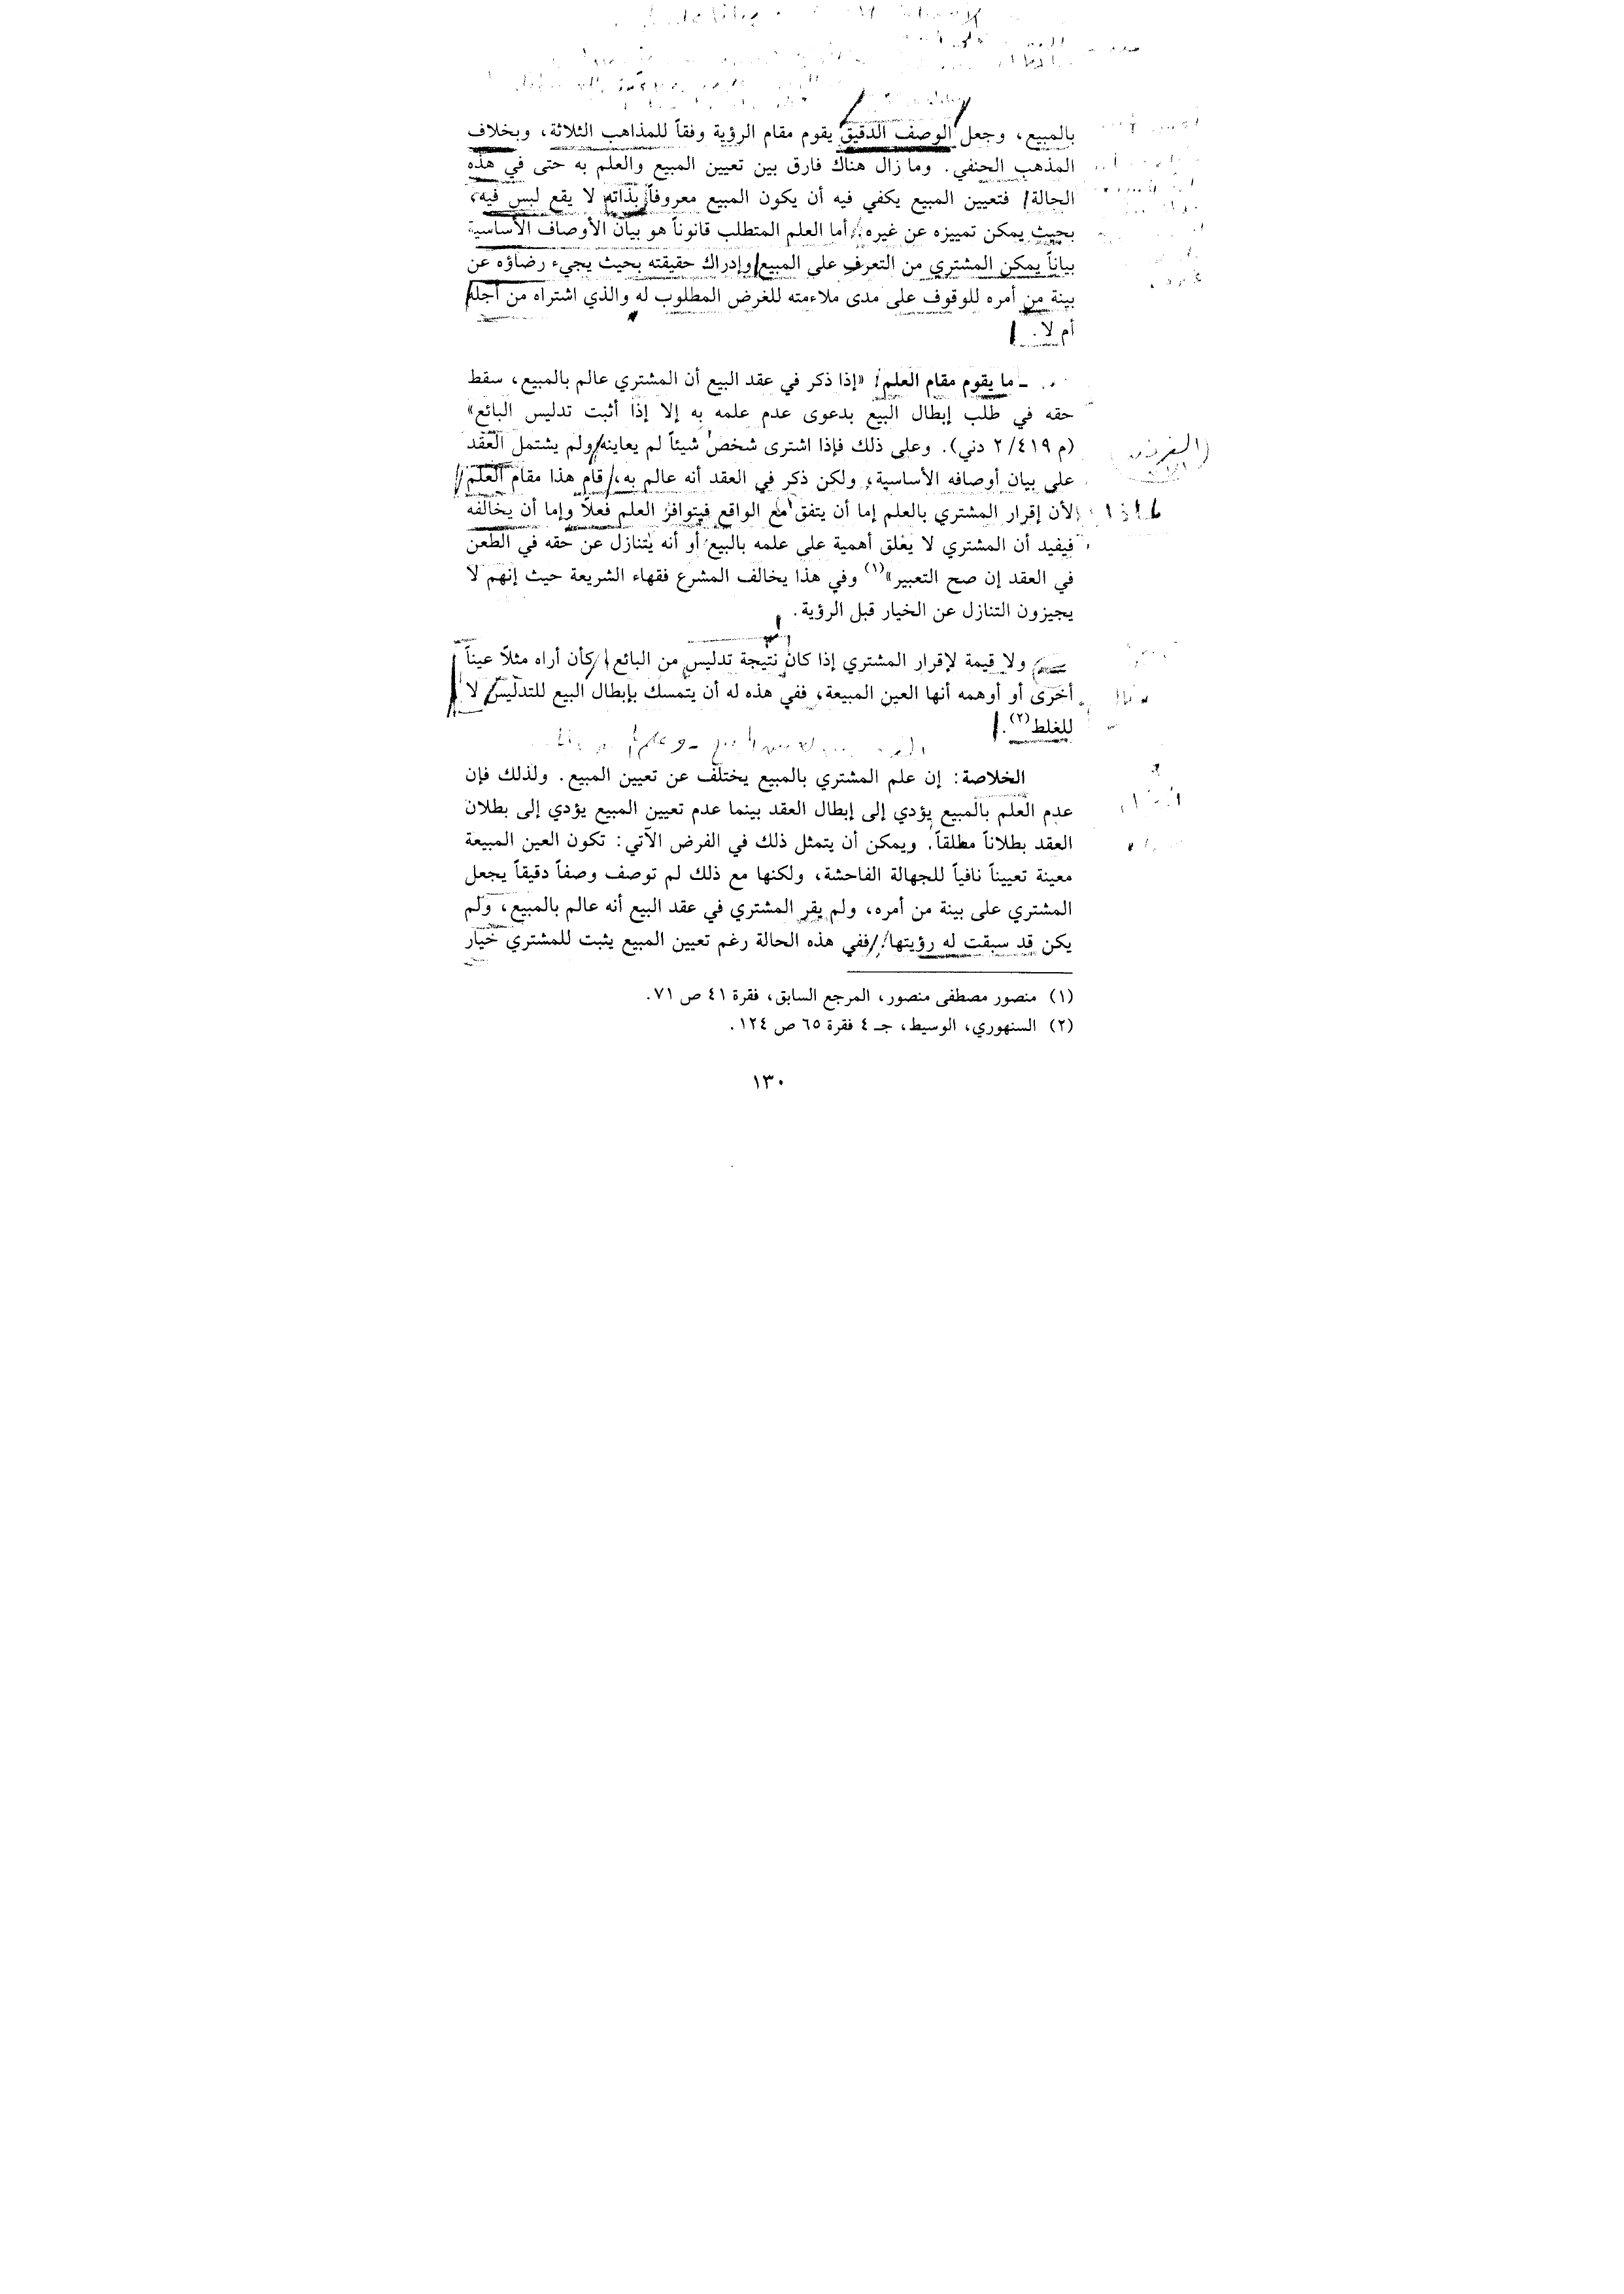 بالمبيع، وجعل الوصف الدقيق يقوم مقام الرؤية وفقاً للمذاهب الثلاثة، وبخلاف
المذهب الحنفي. وما زال هناك فارق بين تعيين المبيع والعلم به حتى في هذه
الحالة فتعيين المبيع يكفي فيه أن يكون المبيع معروفاً بذاته لا يقع لبس فيه،
بحيث يمكن تمييزه عن غيره، أما العلم المتطلب قانوناً هو بيان الأوصاف الأساسية
بياناً يمكن المشتري من التعرف على المبيع وإدراك حقيقته بحيث يجيء رضاؤه عن
بينة من أمره للوقوف على مدى ملاءمته للغرض المطلوب له والذي اشتراه من أجله
أم لا.
ـ ما يقوم مقام العلم: «إذا ذكر في عقد البيع أن المشتري عالم بالمبيع، سقط
حقه في طلب إبطال البيع بدعوى عدم علمه به إلا إذا أثبت تدليس البائع»
(م ٢/٤١٩ دني). وعلى ذلك فإذا اشترى شخص شيئاً لم يعاينه ولم يشتمل العقد
على بيان أوصافه الأساسية، ولكن ذكر في العقد أنه عالم به، قام هذا مقام العلم
لماذا لأن إقرار المشتري بالعلم إما أن يتفق مع الواقع فيتوافر العلم فعلاً وإما أن يخالفه
فيفيد أن المشتري لا يعلق أهمية على علمه بالبيع أو أنه يتنازل عن حقه في الطعن
في العقد إن صح التعبير»(١) وفي هذا يخالف المشرع فقهاء الشريعة حيث إنهم لا
يجيزون التنازل عن الخيار قبل الرؤية.
ولا قيمة لإقرار المشتري إذا كان نتيجة تدليس من البائع كأن أراه مثلاً عيناً
أخرى أو أوهمه أنها العين المبيعة، ففي هذه له أن يتمسك بإبطال البيع للتدليس لا
للغلط(٢).
الخلاصة: إن علم المشتري بالمبيع يختلف عن تعيين المبيع. ولذلك فإن
عدم العلم بالمبيع يؤدي إلى إبطال العقد بينما عدم تعيين المبيع يؤدي إلى بطلان
العقد بطلاناً مطلقاً. ويمكن أن يتمثل ذلك في الفرض الآتي: تكون العين المبيعة
معينة تعييناً نافياً للجهالة الفاحشة، ولكنها مع ذلك لم توصف وصفاً دقيقاً يجعل
المشتري على بينة من أمره، ولم يقر المشتري في عقد البيع أنه عالم بالمبيع، ولم
يكن قد سبقت له رؤيتها، ففي هذه الحالة رغم تعيين المبيع يثبت للمشتري خيار
(١) منصور مصطفى منصور، المرجع السابق، فقرة ٤١ ص ٧١.
(٢) السنهوري، الوسيط، جـ ٤ فقرة ٦٥ ص ١٢٤.
١٣٠